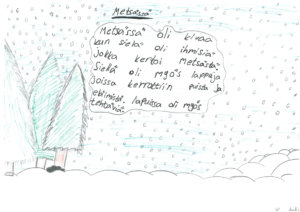 Metsässä
Metsässä oli kivaa
kun sielä oli ihmisiä
jotka kertoi metsästä
Siellä oli myös lappuja
joissa kerrottiin puista ja
eläimistä. lapuissa oli myös
tehtäviä.